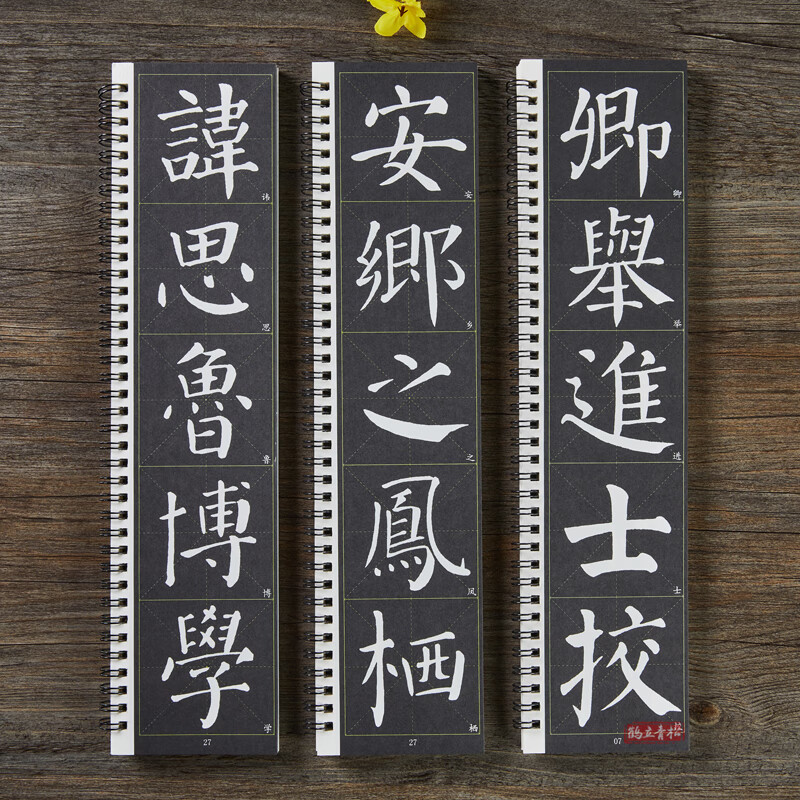 諱
讳
思
思
魯
鲁
博
博
學
学
27
安
安
鄉
乡
之
之
鳳
凤
栖
栖
27
卿
卿
舉
举
進
进
士
士
挍
07
鹤立青松